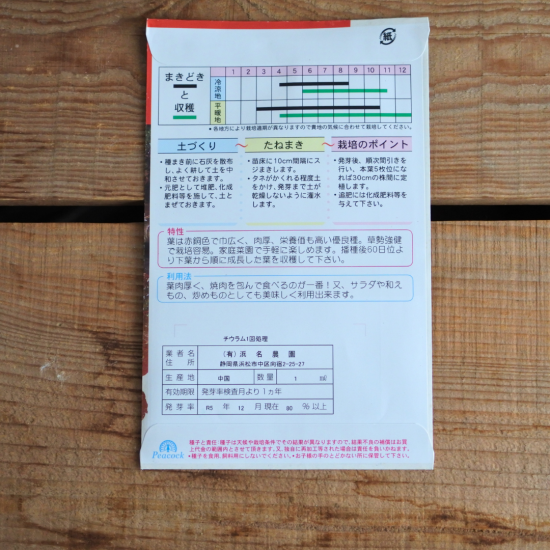 紙
まきどき
と
収穫
1 2 3 4 5 6 7 8 9 10 11 12
冷涼地
平暖地
●各地方により栽培適期が異なりますので貴地の気候に合わせて栽培してください。
土づくり
●種まき前に石灰を散布
し、よく耕して土を中
和させておきます。
●元肥として堆肥、化成
肥料等を施して、土と
まぜておきます。
たねまき
●苗床に10cm間隔にス
ジまきします。
●タネがかくれる程度土
をかけ、発芽まで土が
乾燥しないように灌水
します。
栽培のポイント
●発芽後、順次間引きを
行い、本葉5枚位にな
れば30cmの株間に定
植します。
●追肥には化成肥料等を
与えて下さい。
特性
葉は赤銅色で巾広く、肉厚、栄養価も高い優良種。草勢強健
で栽培容易。家庭菜園で手軽に楽しめます。播種後60日位よ
り下葉から順に成長した葉を収穫して下さい。
利用法
葉肉厚く、焼肉を包んで食べるのが一番！又、サラダや和え
もの、炒めものとしても美味しく利用出来ます。
チウラム1回処理
業者名 (有)浜名農園
住所 静岡県浜松市中区向宿2-25-27
生産地 中国 数量 1 ml
有効期限 発芽率検査月より1ヵ年
発芽率 R5 年 12 月現在 80 %以上
Peacock
種子と責任：種子は天候や栽培条件でその結果が異なりますので、結果不良の補償はお買
上代金の範囲内とさせて頂きます。又、独自に再加工等された場合は責任を負いかねます。
●種子を食用、飼料用にしないでください。●お子様の手のとどかない所に保管して下さい。